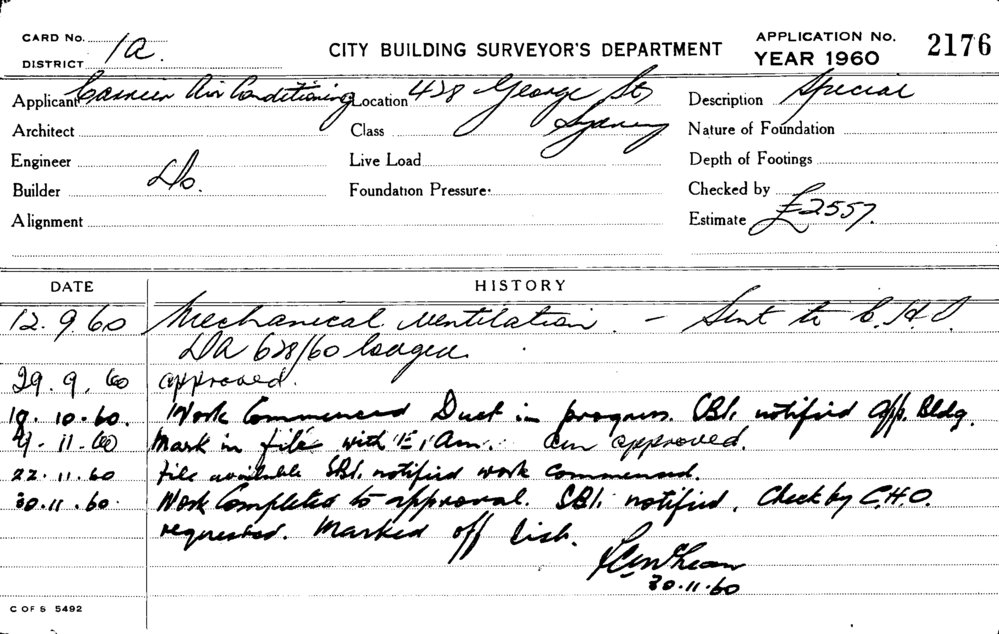 CARD No.
DISTRICT 1A.
CITY BUILDING SURVEYOR'S DEPARTMENT
APPLICATION No. 2176
YEAR 1960
Applicant Carrier Air Conditioning Location 428 George St, Description Special
Architect Class Sydney Nature of Foundation
Engineer Live Load Depth of Footings
Builder Do. Foundation Pressure Checked by
Alignment Estimate £2557.
DATE HISTORY
12.9.60 Mechanical ventilation - Sent to C.H.O.
DA 628/60 lodged.
29.9.60 approved.
18.10.60. Work Commenced Duct in progress. SBI. notified App. Bldg.
11.60 Mark in file with approved.
22.11.60 File available SBI. notified work commenced.
30.11.60. Work Completed to approval. SBI. notified. Check by C.H.O.
requested. Marked off list.
30.11.60
C OF S 5492